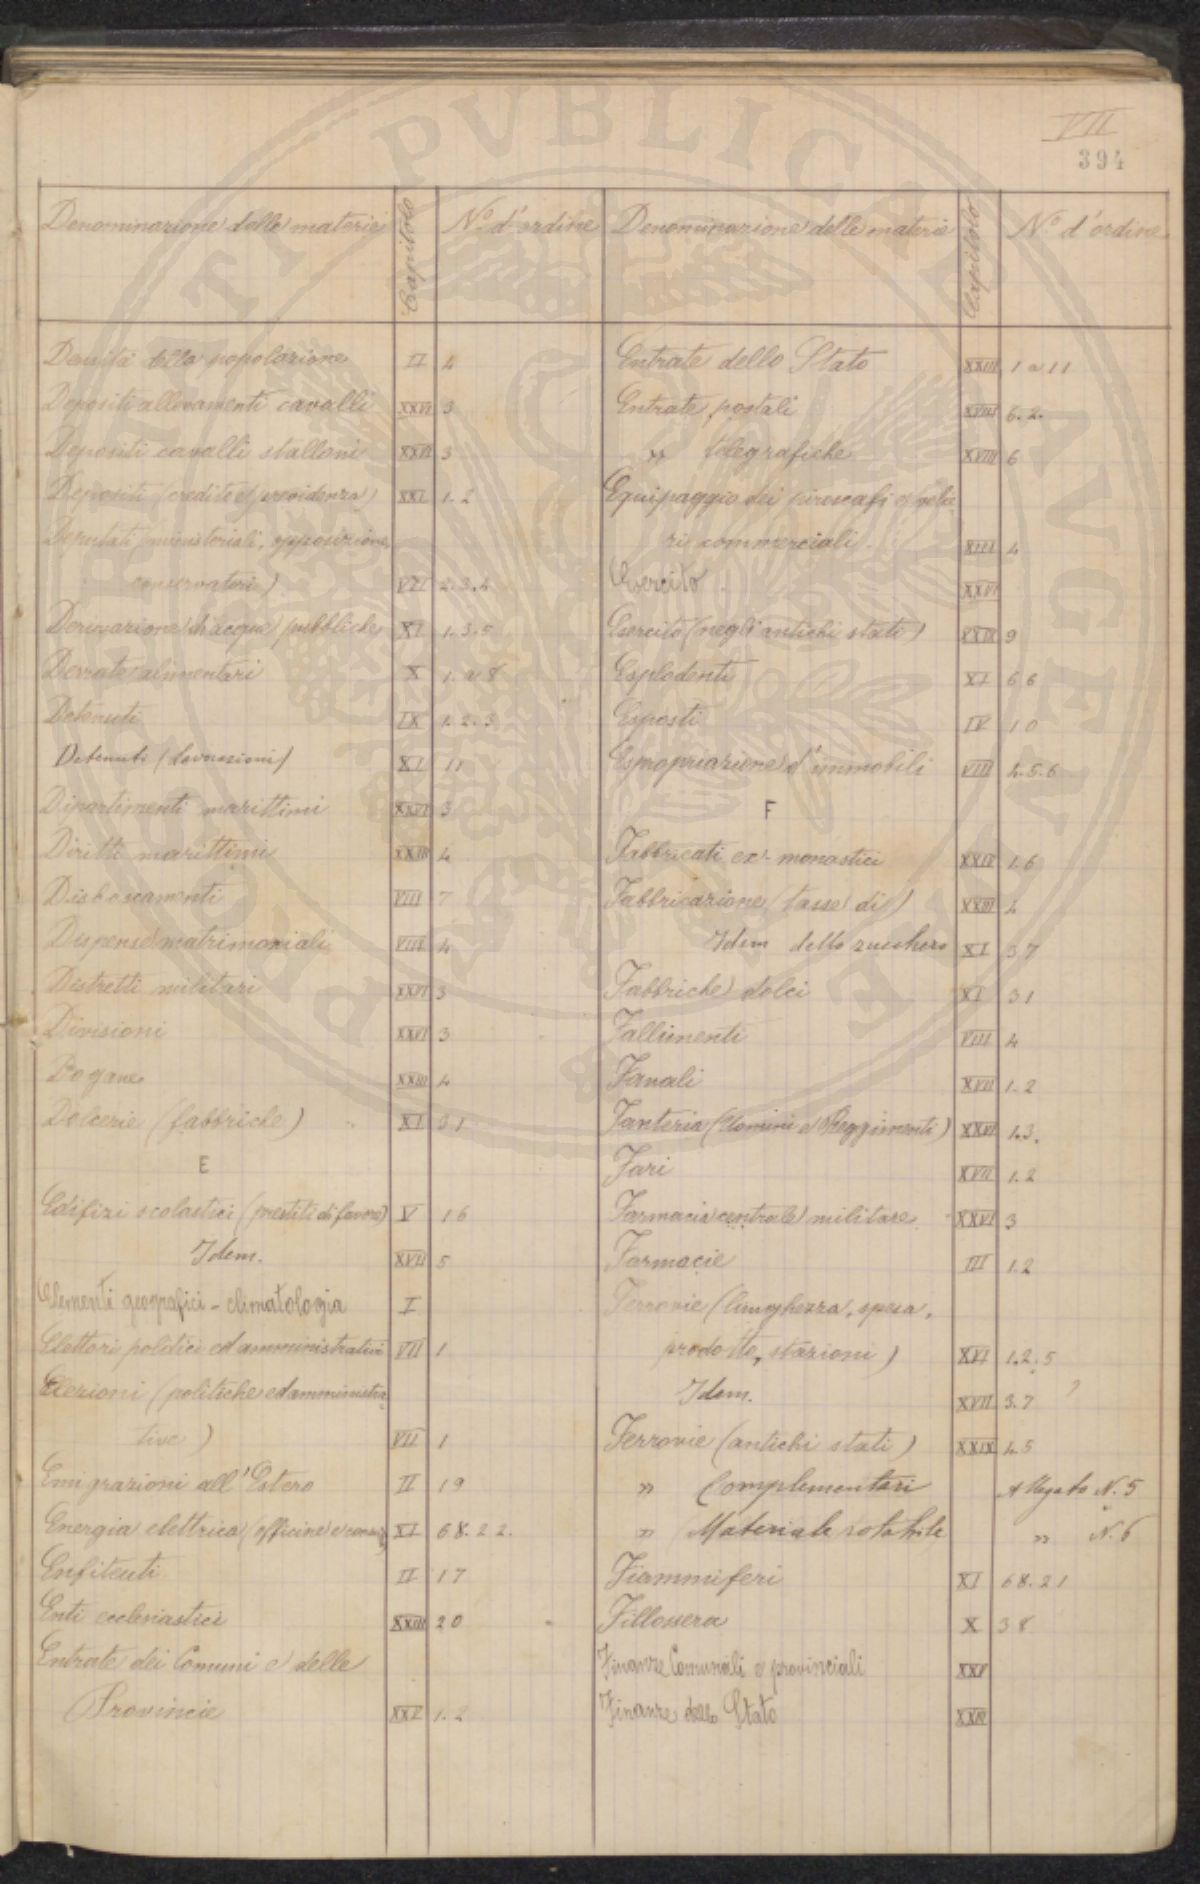 VII
394
Denominazione delle materie Capitolo N.o d'ordine
Densità della popolazione II 4
Depositi allevamenti cavalli XXVI 3
Depositi cavalli stalloni XXVI 3
Depositi (credito e previdenza) XXI 1.2
Deputati (ministeriali, opposizione,
conservatori) VII 2.3.4
Derivazione di acque pubbliche XI 1.3.5
Derrate alimentari X 1 a 8
Detenuti IX 1.2.3
Detenuti (lavorazioni) XI 11
Dipartimenti marittimi XXVI 3
Diritti marittimi XXIII 4
Disboscamenti VIII 7
Dispense matrimoniali VIII 4
Distretti militari XXVI 3
Divisioni XXVI 3
Dogane XXIII 4
Dolcerie (fabbriche) XI 31
E
Edifizi scolastici (prestiti di favore) V 16
Idem. XVII 5
Elementi geografici - climatologia I
Elettori politici ed amministrativi VII 1
Elezioni (politiche ed amministra
tive) VII 1
Emigrazioni all'Estero II 19
Energia elettrica (officine e XI 68.22.
Enfiteuti II 17
Enti ecclesiastici XXIII 20
Entrate dei Comuni e delle
Provincie XXV 1.2
Denominazione delle materie Capitolo N.o d'ordine
Entrate dello Stato XXIII 1 a 11
Entrate postali XVIII 6.2.
" telegrafiche XVIII 6
Equipaggio dei piroscafi e velie
ri commerciali. XIII 4
Esercito XXVI
Esercito (negli antichi stati) XXIX 9
Esplodenti XI 66
Esposti IV 10
Espropriazione d'immobili VIII 4.5.6
F
Fabbricati ex-monastici XXIV 1.6
Fabbricazione (tasse di) XXIII 4
Idem dello zucchero XI 37
Fabbriche dolci XI 31
Fallimenti VIII 4
Fanali XVII 1.2
Fanteria (Uomini e Reggimenti) XXVI 1.3.
Fari XVII 1.2
Farmacia centrale militare XXVI 3
Farmacie III 1.2
Ferrovie (lunghezza, spesa,
prodotto, stazioni) XVI 1.2.5
Idem. XVII 3.7
Ferrovie (antichi stati) XXIX 4.5
" Complementari Allegato N. 5
" Materiale rotabile " N. 6
Fiammiferi XI 68.21
Fillossera X 38
Finanze Comunali e provinciali XXV
Finanze dello Stato